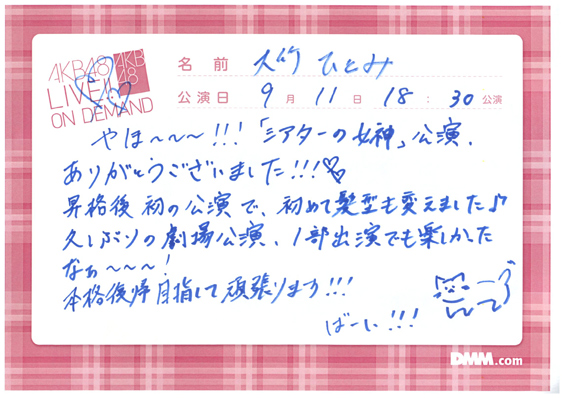 AKB48
LIVE!!
ON DEMAND
AKB
48
名前 大竹 ひとみ
公演日 9月 11日 18:30公演
やほ〜〜〜!!!「シアターの女神」公演、
ありがとうございました!!!♡♡
昇格後初の公演で、初めて髪型も変えました♪
久しぶりの劇場公演、1部出演でも楽しかった
なぁ〜〜〜!
本格復帰目指して頑張ります!!!
ばーい!!!
DMM.com